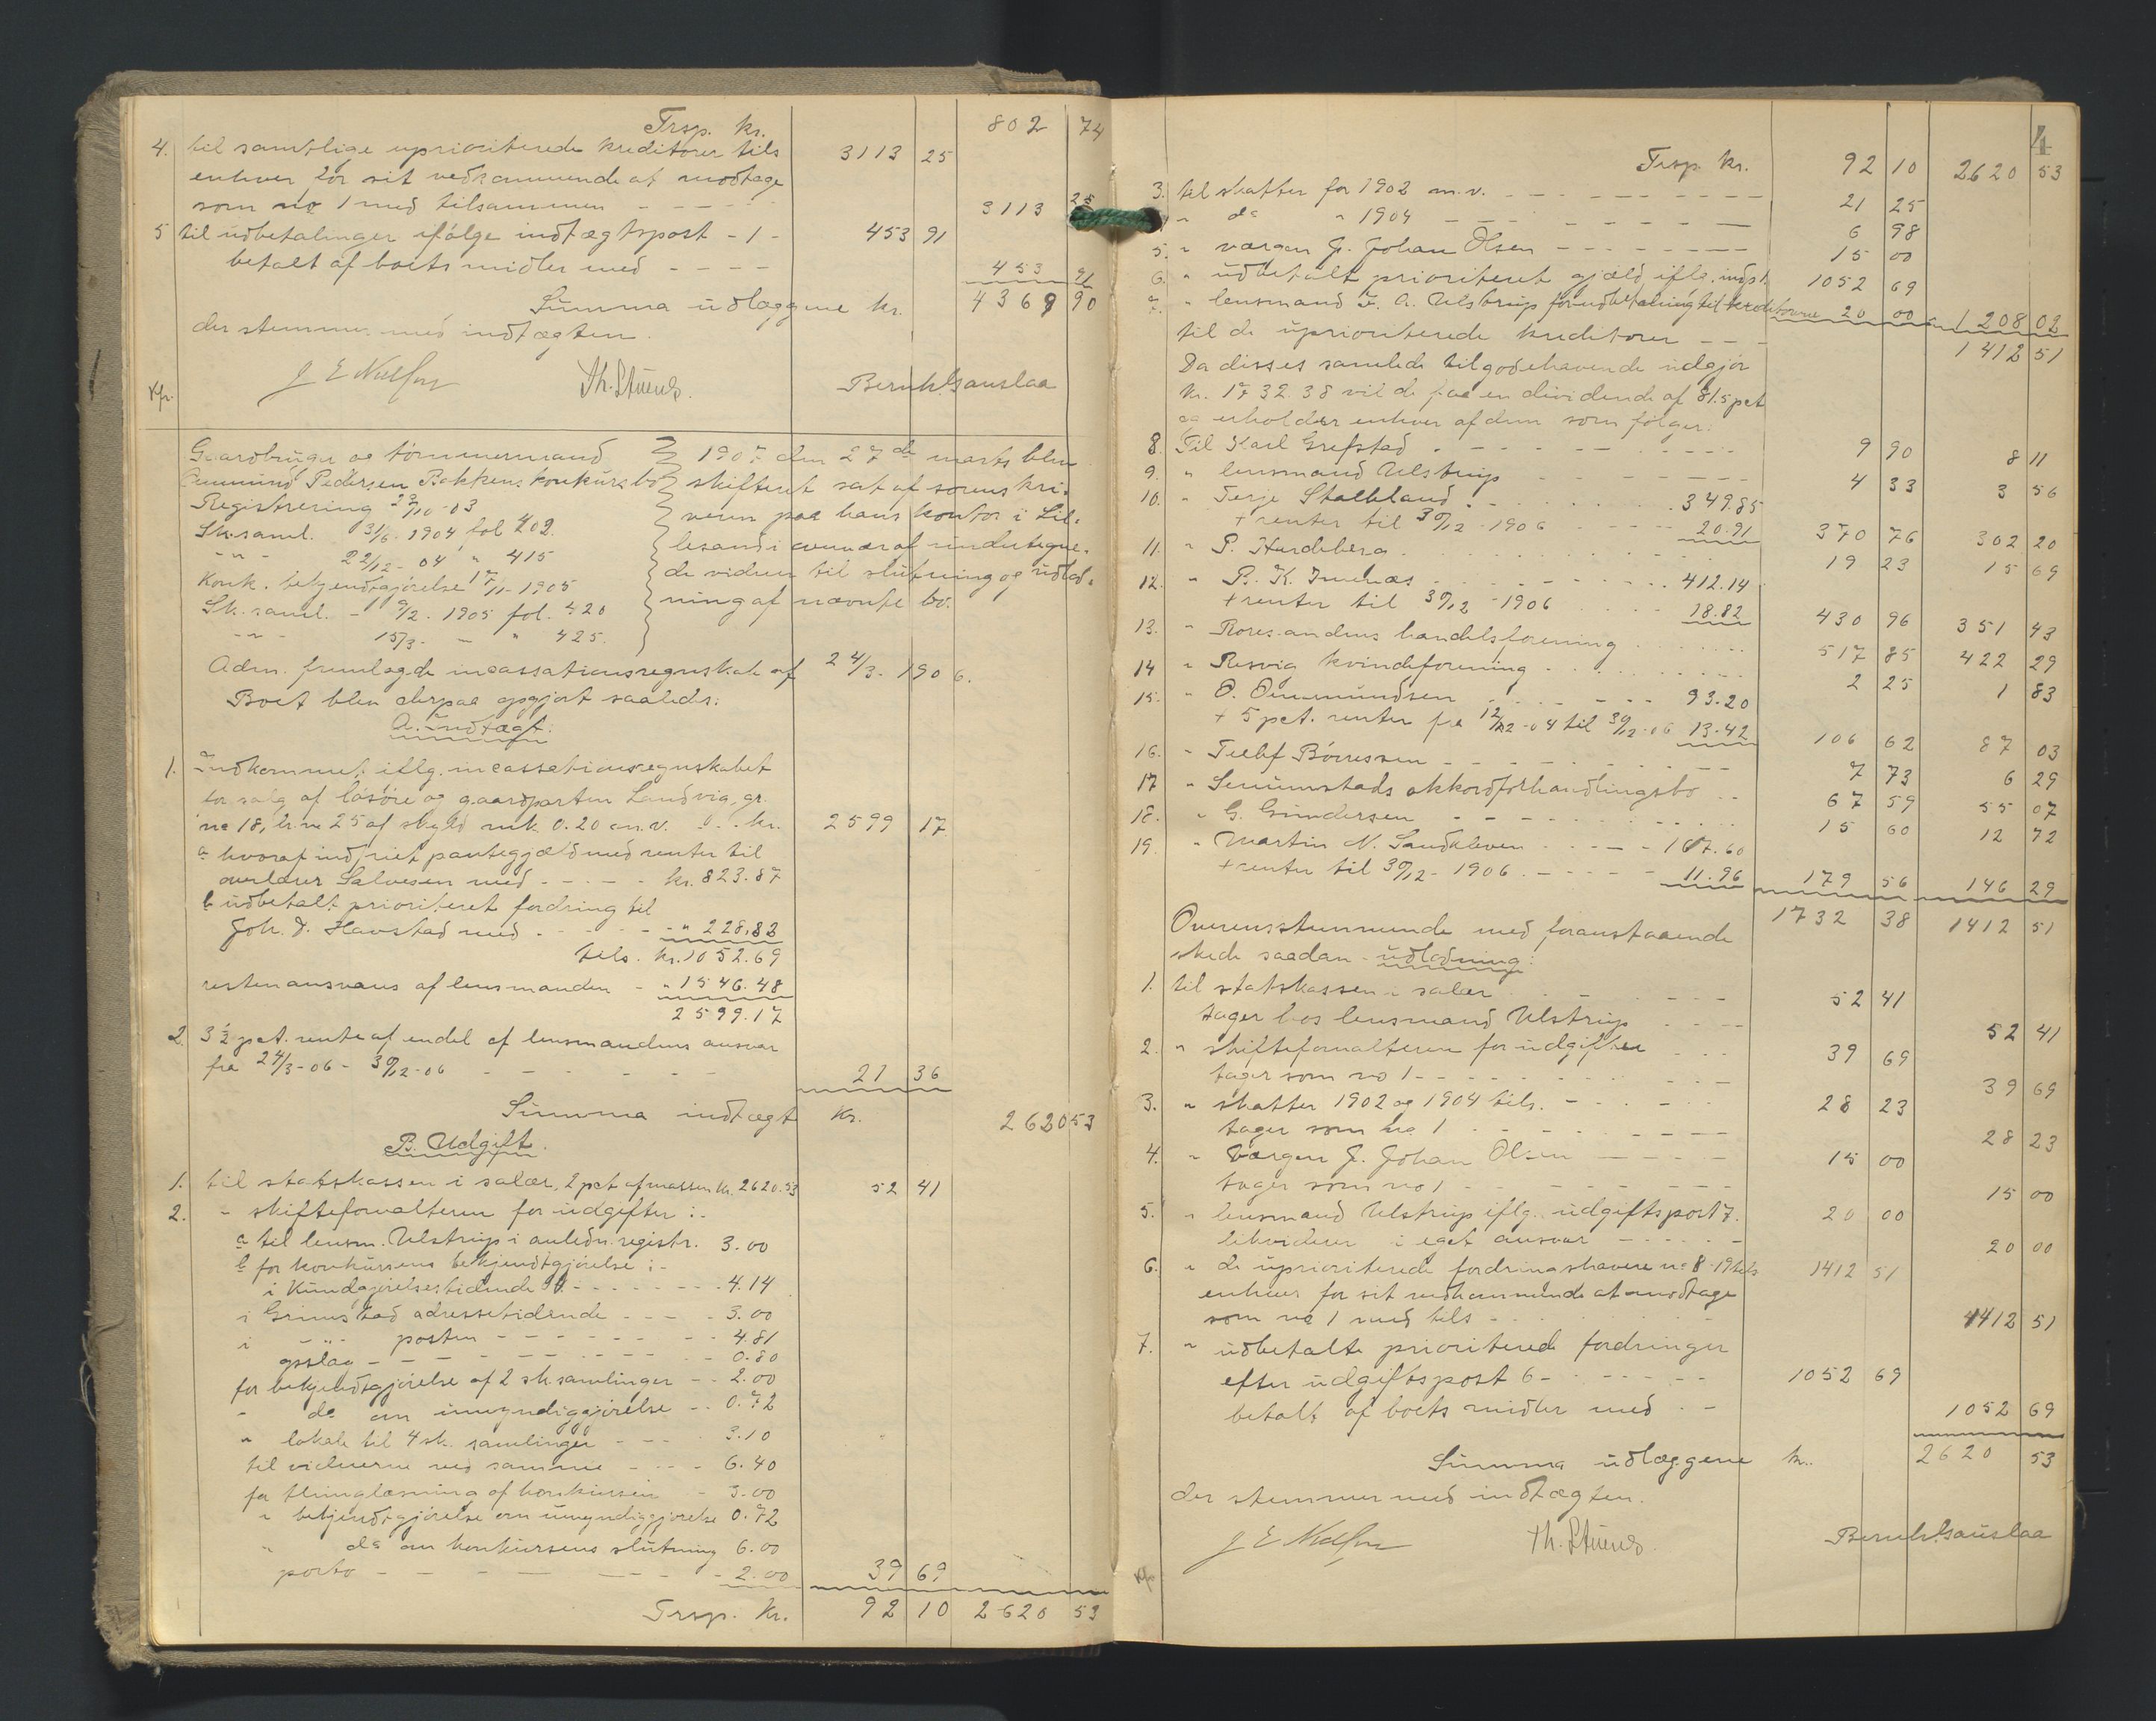 Trsp. kr. 802 74
4. til samtlige uprioriterede kreditorer tils 3113 25
enhver for sit vedkommende at modtage
som no 1 med tilsammen - - - - - 3113 25
5 til udbetalinger ifølge indtægtspost - 1 - 453 91
betalt af boets midler med - - - - 453 91
Summa udlæggene kr. 4369 90
der stemmer med indtægten.
Th. Stuevs. Bernh. Isauslaa
Gaardbruger og tømmermand
Aanund Pedersen Bakkens konkursbo
Registrering 29/10-03
Sk. saml. 31/6. 1904 fol 409.
-"- 22/12- 04 " 415
Konk. bekjendtgjørelse 17/1-1905
Sk. saml. - 9/2. 1905 fol. 420
-"- 15/3- - " 425.
1907 den 27de marts blev
skifteret sat af sorenskri-
veren paa hans kontor i Lil-
lesand i nærvær af undertegne-
de vidner til slutning og udlod-
ning af nævnte bo.
Adm. fremlagde incassationsregnskab af 24/3. 1906.
Boet blev derpaa opgjort saaledes:
A. Indtægt:
1. Indkommet iflg. incassationsregnskabet
for salg af løsøre og gaardparten Landvig, gr.
no 18, br. no 25 af skyld mk. 0.20 m.v. - . . kr. 2599 17
a hvoraf indfriet pantegjæld med renter til
overlærer Salvesen med - - - - - kr. 823.87
b udbetalt prioriteret fordring til
Joh. D. Havstad med - - - - - - " 228,82
tils. kr. 1052.69
resten ansvares af lensmanden - " 1546.48
2599.17
2. 3½ pct. rente af endel af lensmandens ansvar
fra 24/3-06 - 30/12-06 - - - - - - 21 36
Summa indtægt kr. 2620 53
B. Udgift.
1. til statskassen i salær, 2 pct af massen kr. 2620.53 52 41
2. " skifteforvalteren for udgifter :-
a til lensm. Ulstrup i anledn. registr. 3.00
b for konkursens bekjendtgjørelse :-
i Kundgjørelsestidende - - - - - - - 4.14
i Grimstad adressetidende - - - - 3.00
i -"- posten - - - - - - - 4.81
opslag - - - - - - - - - - 0.80
for bekjendtgjørelse af 2 sk. samlinger - - 2.00
" do om umyndiggjørelse - . 0.72
" lokale til 4 sk. samlinger - - - - 3.10
til vidnerne ved samme - - - - 6.40
for thinglæsning af konkursen - 3.00
" bekjendtgjørelse om umyndiggjørelse 0.72
" do om konkursens slutning 6.00
porto - - - - - - - - - 2.00 39 69
Trsp. kr. 92 10 2620 53
4
Trsp kr. 92 10 2620 53
3. til skatter for 1902 m.v. - - - - - - - - 21 25
" do " 1904 - - - - - - - - 6 98
5. " værgen J. Johan Olsen - - - - - - - 15 00
6. " udbetalt prioriteret gjæld iflg. indpt. 1052 69
7. " lensmand F. A. Ulstrup for udbetaling til kreditorerne 20 00 1208 02
til de uprioriterede kreditorer - - - 1412 51
Da disses samlede tilgodehavende udgjør
kr. 1732.38 vil de faa en dividende af 81.5 pct
og erholder enhver af dem som følger:
8. Til Karl Grefstad - - - - - - - - 9 90 8 11
9. " lensmand Ulstrup - - - - - - - 4 33 3 56
10. " Terje Stalleland - . . . . . 349.85
+ renter til 30/12-1906 - - - - 20.91 370 76 302 20
11. " P. Hurdeberg . . . . . . . . . 19 23 15 69
12. " P. K. Imenæs - - - - - - - - 412.14
+ renter til 30/12-1906 - - - - 18.82 430 96 351 43
13. " Roresandens handelsforening . . . . . . 517 85 422 29
14 " Resvig kvindeforening . . . . . . . . . 2 25 1 83
15. " O. Aanundsen - - - - - - - 93.20
+ 5 pct. renter fra 12/2-04 til 30/12-06 13.42 106 62 87 03
16. " Tellef Børressen - - - - - - - - - 7 73 6 29
17 " Senumstads akkordforhandlingsbo . . 67 59 55 07
18. " G. Gundersen - - - - - . . . . . 15 60 12 72
19. " Martin N. Sandkleven - - - - 167.60
+ renter til 30/12-1906. - - - - - 11.96 179 56 146 29
1732 38 1412 51
Overensstemmende med foranstaaende
skede saadan udlodning:
1. til statskassen i salær - - - - - - - 52 41
tager hos lensmand Ulstrup - - - - - 52 41
2. " skifteforvalteren for udgifter - - - 39 69
tager som no 1 - - - - - - - - - - 39 69
3. " skatter 1902 og 1904 tils. - - - - - - 28 23
tager som no 1 - - - - - - - - - 28 23
4. " værgen J. Johan Olsen - - - - - 15 00
tager som no 1 - - - - - - - - - 15 00
5. " lensmand Ulstrup iflg. udgiftspost 7. 20 00
likviderer i eget ansvar - - - - - - 20 00
6. " de uprioriterede fordringshavere no 8-19 tils 1412 51
enhver for sit vedkommende at modtage
som no 1 med tils - - - - - - - - 1412 51
7. " udbetalte prioriterede fordringer
efter udgiftspost 6 - - - - - - - 1052 69
betalt af boets midler med - - 1052 69
Summa udlæggene kr. 2620 53
der stemmer med indtægten.
Th. Stuevs. Bernh. Isauslaa